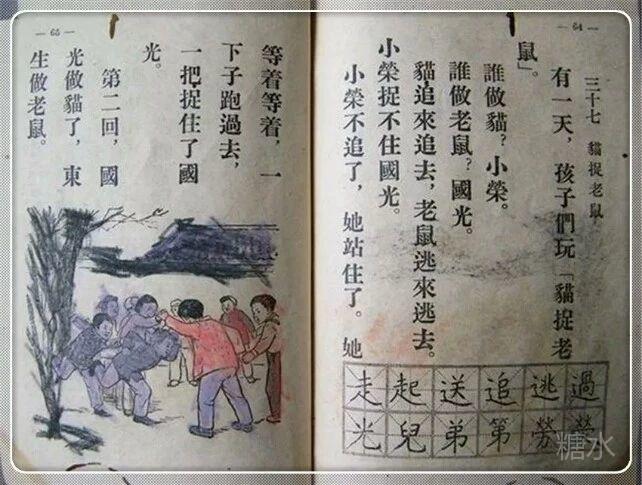 — 64 —
三十七　貓捉老鼠
有一天，孩子們玩「貓捉老
鼠」。
誰做貓？小榮。
誰做老鼠？國光。
貓追來追去，老鼠逃來逃去。
小榮捉不住國光。
小榮不追了，她站住了。她
過逃追送起走
勞第弟兒光
— 65 —
等着等着，一
下子跑過去，
一把捉住了國
光。
第二回，國
光做貓了，東
生做老鼠。
糖水